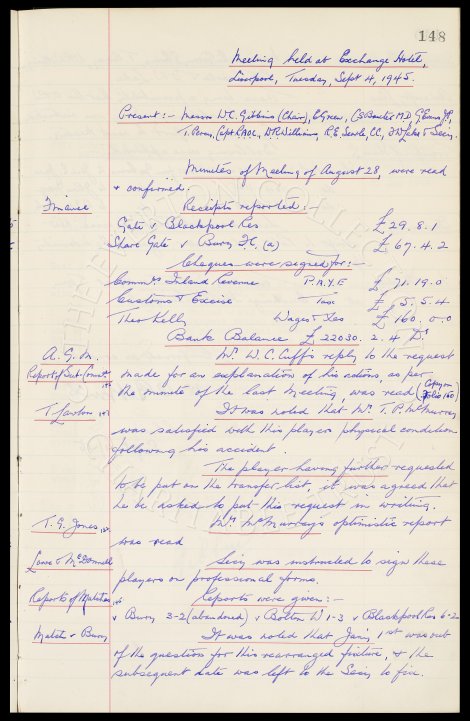 148
Meeting held at Exchange Hotel,
Liverpool, Tuesday, Sept 4, 1945.
Present:- Messrs W.C. Gibbins (Chair), E. Green, C.S. Baxter M.D., G. Evans JP,
T. Percy, W.R. Williams, R.E. Searle, CC, & Secy.
Minutes of Meeting of August 28, were read
& confirmed.
Finance Receipts reported:-
Gate v Blackpool Res £29.8.1
Share Gate v Bury FC (a) £67.4.2
Cheques were signed for:-
Commrs Inland Revenue P.A.Y.E £71.19.0
Customs & Excise Tax £5.5.4
Theo Kelly Wages & Exs £160.0.0
Bank Balance £22030.2.4 Dr
A.G.M. Mr. W.C. Cuff's reply to the request
Report of Sub Comtt. made for an explanation of his actions, as per
the minute of the last Meeting, was read (Copy on folio 150)
T. Lawton It was noted that Mr. T.P. McMurray
was satisfied with this player's physical condition
following his accident.
The player having further requested
to be put on the transfer list, it was agreed that
he be asked to put this request in writing.
T.G. Jones Mr. McMurray's optimistic report
was read
Lowe & McDonnell Secy was instructed to sign these
players on professional forms.
Reports of Matches Reports were given:-
v Bury 3-2 (abandoned) v Bolton W 1-3 v Blackpool Res 6-2
Match v Bury It was noted that Jan'y 1st was out
of the question for this rearranged fixture, & the
subsequent date was left to the Secy to fix.